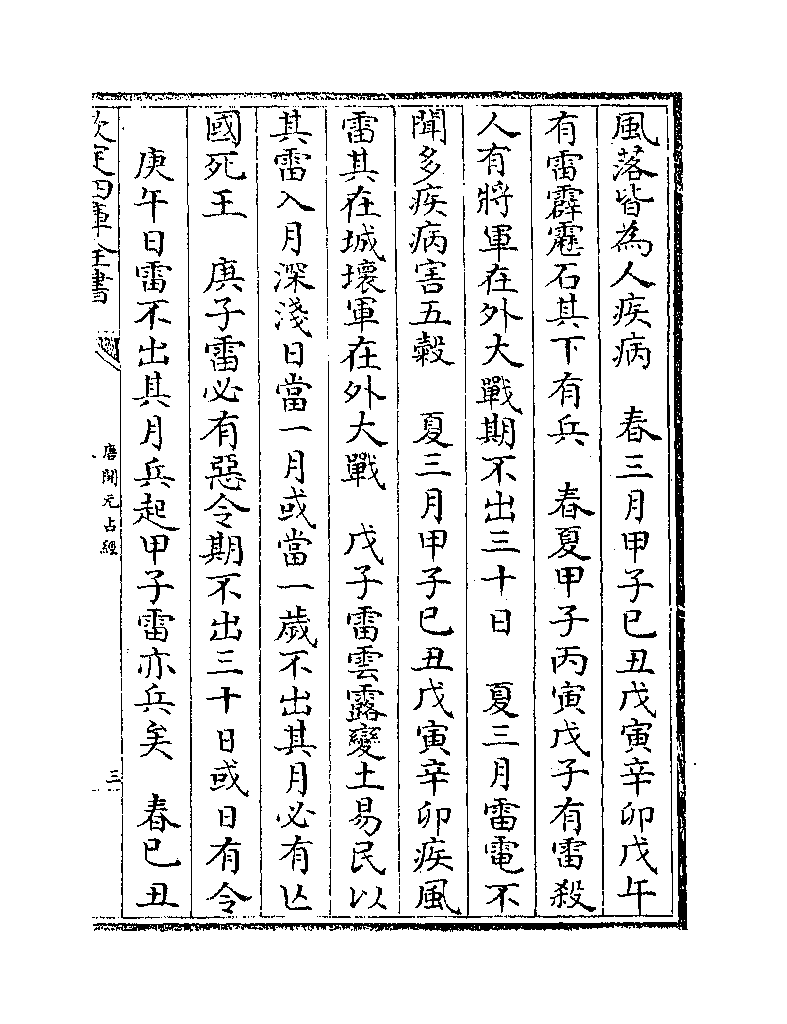 風落皆為人疾病　春三月甲子巳丑戊寅辛卯戊午
有雷霹靂石其下有兵　春夏甲子丙寅戊子有雷殺
人有將軍在外大戰期不出三十日　夏三月雷電不
聞多疾病害五榖　夏三月甲子巳丑戊寅辛卯疾風
雷其在城壊軍在外大戰　戊子雷雲露變土易民以
其雷入月深淺日當一月或當一歲不出其月必有亾
國死王　庚子雷必有惡令期不出三十日或日有令
庚午日雷不出其月兵起甲子雷亦兵矣　春巳丑
欽定四庫全書
唐開元占經
三